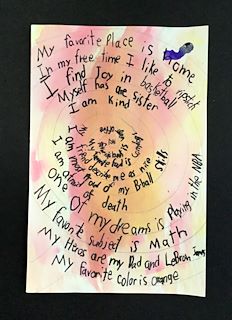 My favorite Place is Home
In my free time I like to ripstick
I find Joy in basketball
Myself has are sister
I am kind
I am most Proud of my Bball Skills
I am afraid of death
One OF my dreams is Playing in the NBA
My Favorite subject is Math
My Heros are my Dad and LeBron James
My favorite color is orange